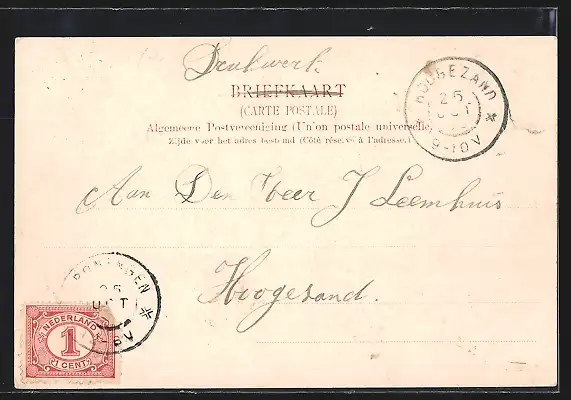 Drukwerk
BRIEFKAART
(CARTE POSTALE)
Algemeene Postvereeniging (Union postale universelle)
Zijde voor het adres bestemd (Côté réservé à l'adresse.)
HOOGEZAND
25
OCT
9-10V
Aan Den Heer J Leemhuis
Hoogezand.
GRONINGEN
25
OCT
8V
NEDERLAND
1
1 CENT